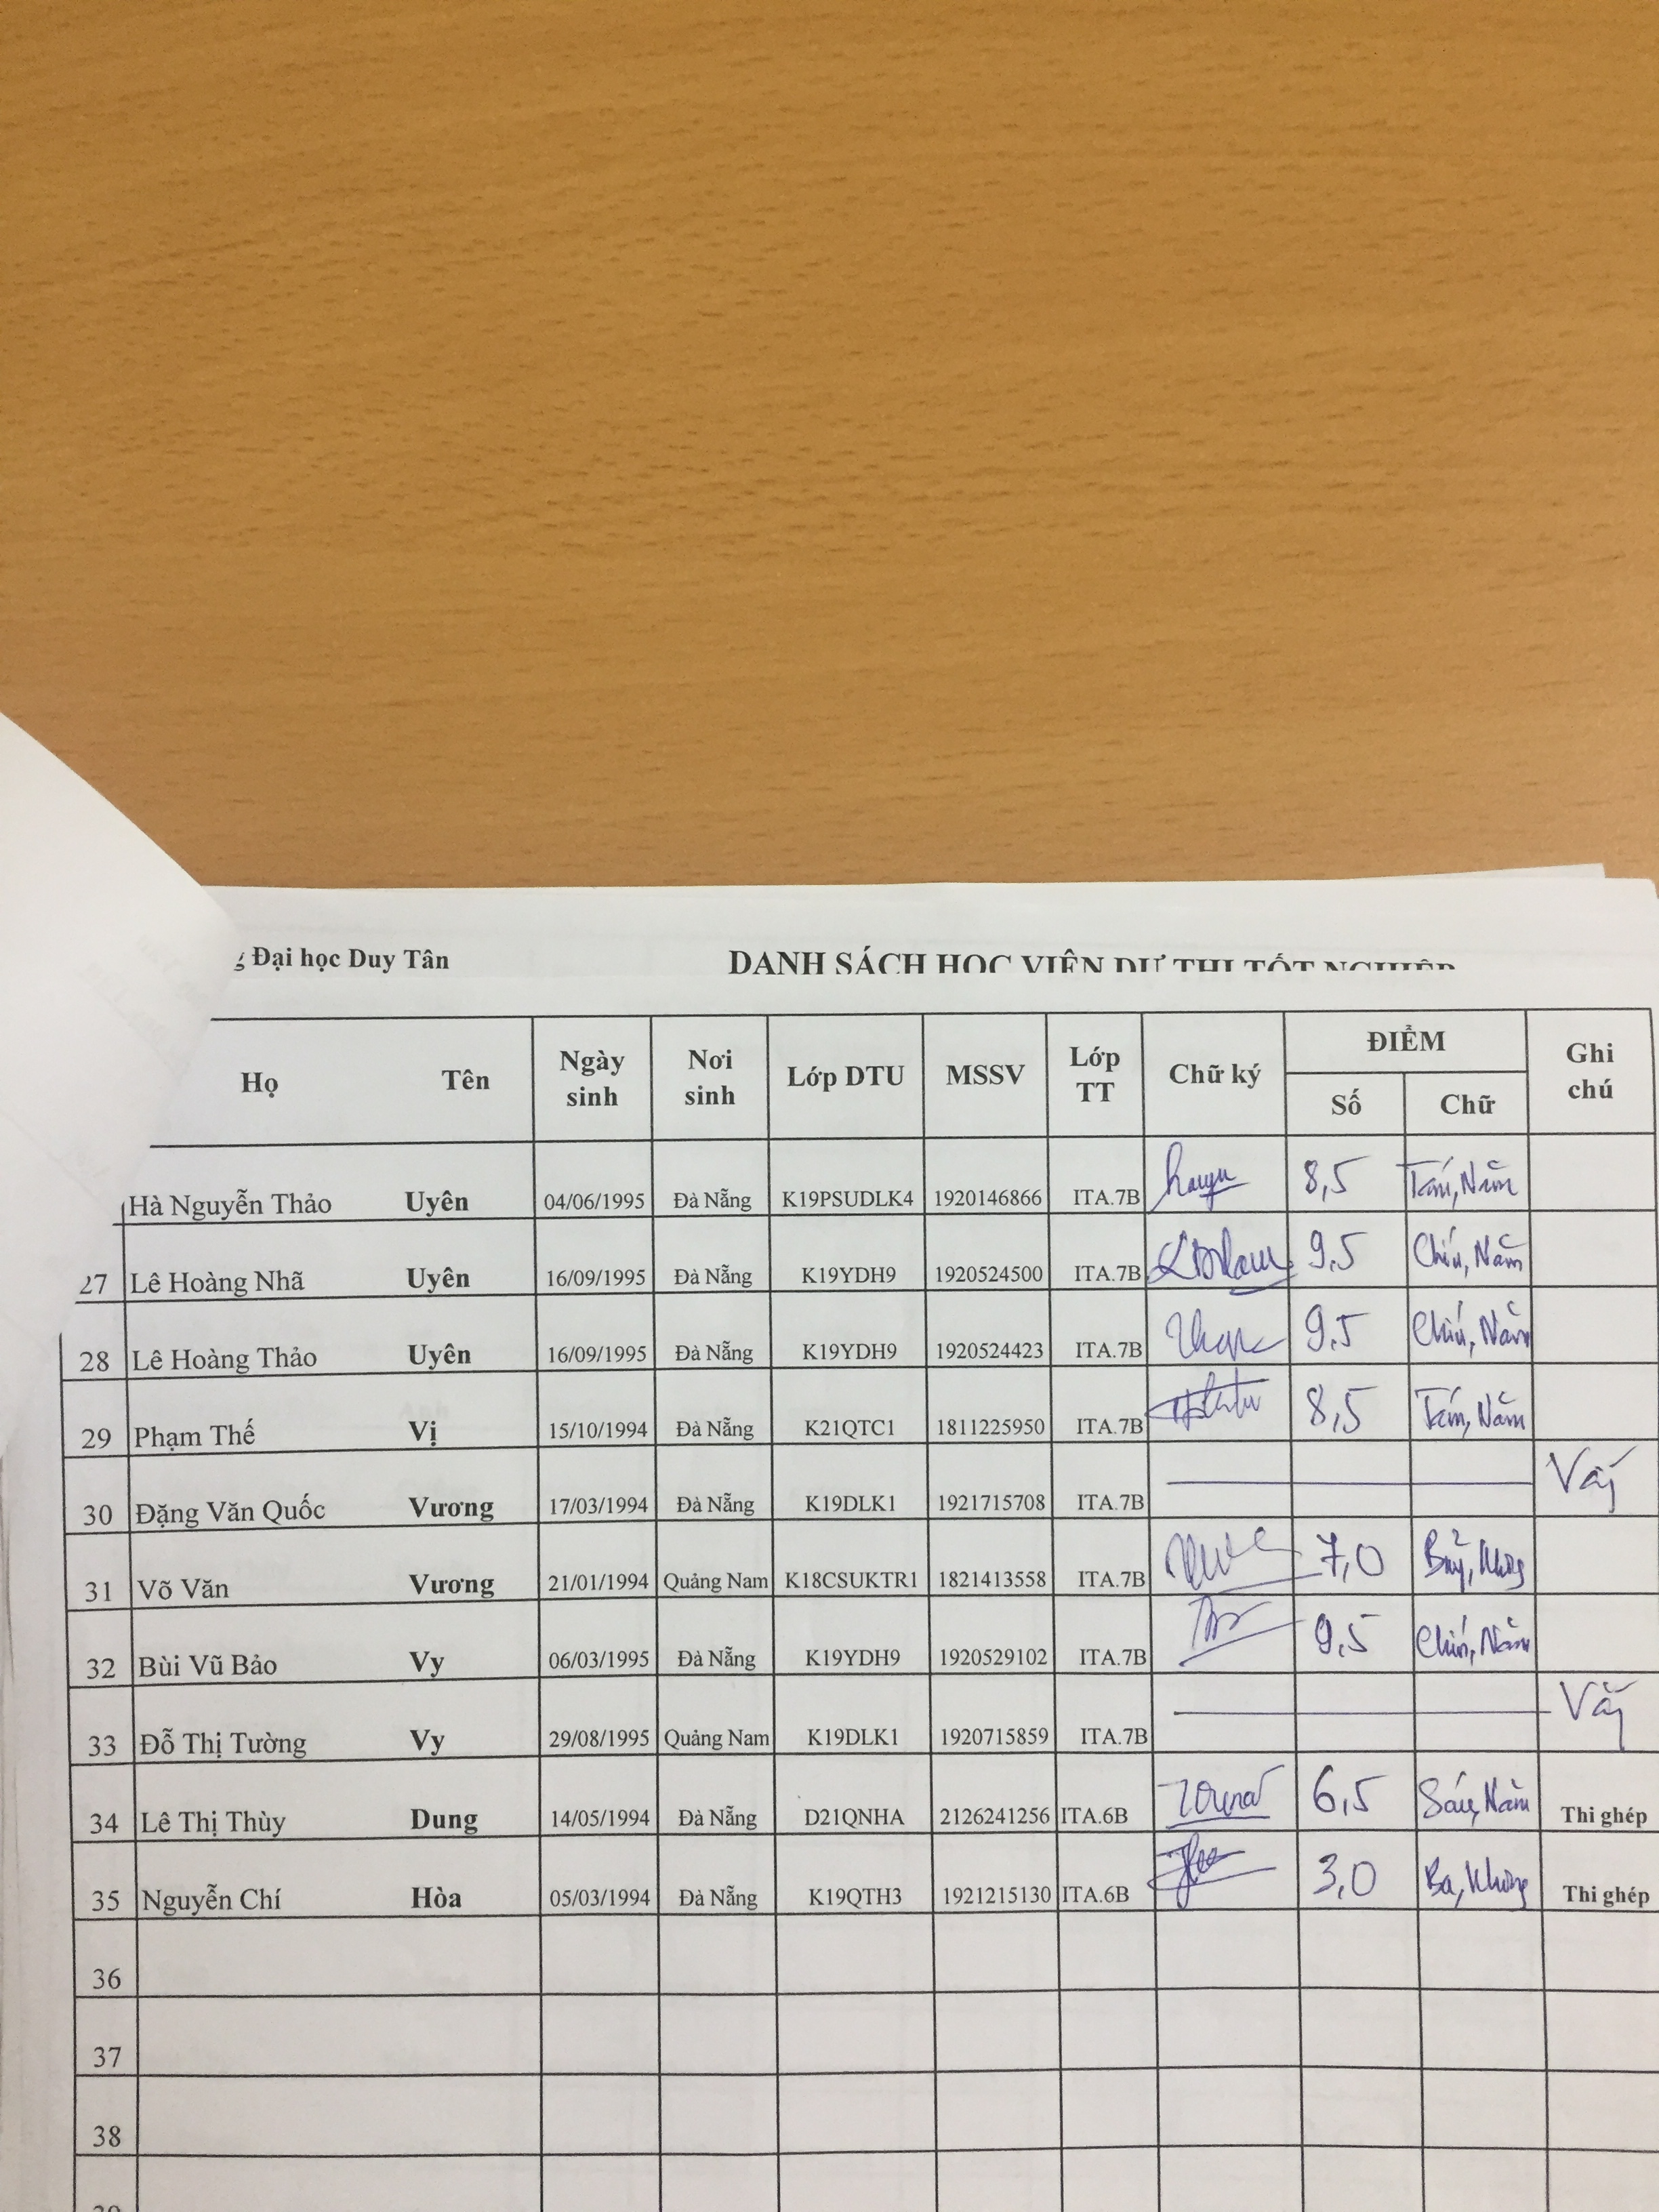 Đại học Duy Tân DANH SÁCH HỌC VIÊN DỰ THI TỐT NGHIỆP
Họ Tên Ngày sinh Nơi sinh Lớp DTU MSSV Lớp TT Chữ ký ĐIỂM Ghi chú
Số Chữ
Hà Nguyễn Thảo Uyên 04/06/1995 Đà Nẵng K19PSUDLK4 1920146866 ITA.7B 8,5 Tám, Năm
27 Lê Hoàng Nhã Uyên 16/09/1995 Đà Nẵng K19YDH9 1920524500 ITA.7B 9,5 Chín, Năm
28 Lê Hoàng Thảo Uyên 16/09/1995 Đà Nẵng K19YDH9 1920524423 ITA.7B 9,5 Chín, Năm
29 Phạm Thế Vị 15/10/1994 Đà Nẵng K21QTC1 1811225950 ITA.7B 8,5 Tám, Năm
30 Đặng Văn Quốc Vương 17/03/1994 Đà Nẵng K19DLK1 1921715708 ITA.7B Vắng
31 Võ Văn Vương 21/01/1994 Quảng Nam K18CSUKTR1 1821413558 ITA.7B 7,0 Bảy, Không
32 Bùi Vũ Bảo Vy 06/03/1995 Đà Nẵng K19YDH9 1920529102 ITA.7B 9,5 Chín, Năm
33 Đỗ Thị Tường Vy 29/08/1995 Quảng Nam K19DLK1 1920715859 ITA.7B Vắng
34 Lê Thị Thùy Dung 14/05/1994 Đà Nẵng D21QNHA 2126241256 ITA.6B 6,5 Sáu, Năm Thi ghép
35 Nguyễn Chí Hòa 05/03/1994 Đà Nẵng K19QTH3 1921215130 ITA.6B 3,0 Ba, Không Thi ghép
36
37
38